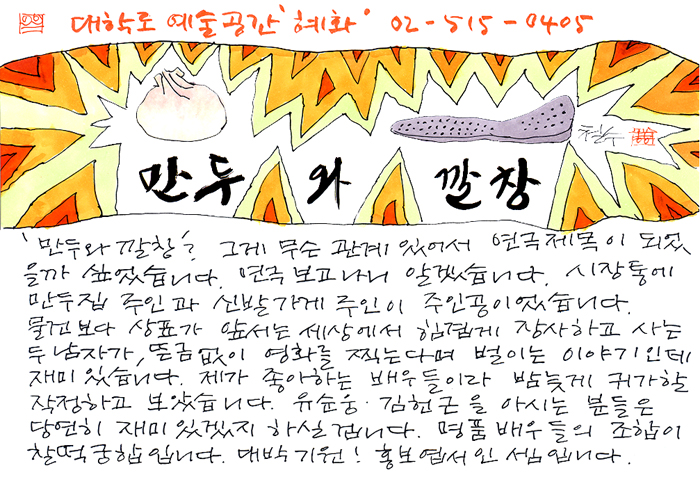 대학로 예술공간 '혜화' 02-515-0405
만두와 깔창
철수
'만두와 깔창'? 그게 무슨 관계 있어서 연극제목이 되었
을까 싶었습니다. 연극 보고나니 알겠습니다. 시장통에
만두집 주인과 신발가게 주인이 주인공이었습니다.
물건보다 상표가 앞서는 세상에서 힘겹게 장사하고 사는
두 남자가, 뜬금없이 영화를 찍는다며 벌이는 이야기인데
재미있습니다. 제가 좋아하는 배우들이라 밤늦게 귀가할
작정하고 보았습니다. 유순웅·김헌근을 아시는 분들은
당연히 재미있겠지 하실겁니다. 명품배우들의 조합이
찰떡궁합입니다. 대박기원! 홍보엽서인 셈입니다.